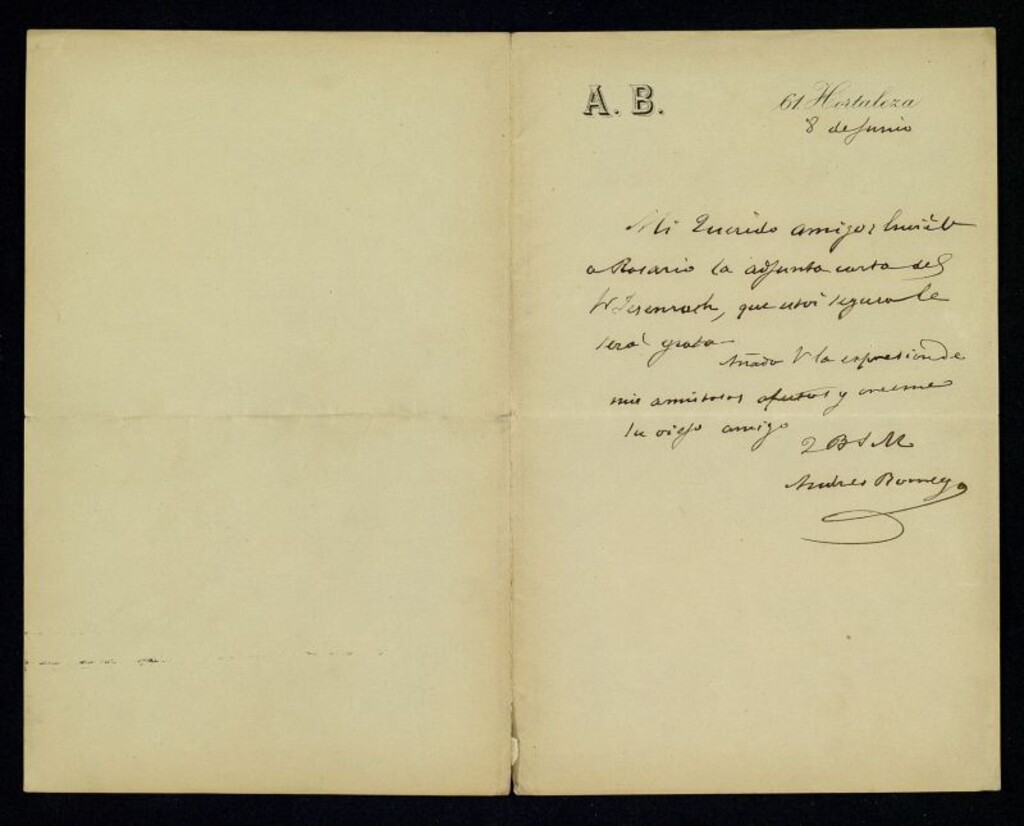 A. B.
61 Hortaleza
8 de Junio
Mi Querido amigo:
a Rosario la adjunta carta del
que estoi seguro le
será grata
Añada V la expresion de
mis amistosos afectos y creame
su viejo amigo
Q B S M
Andres Borrego